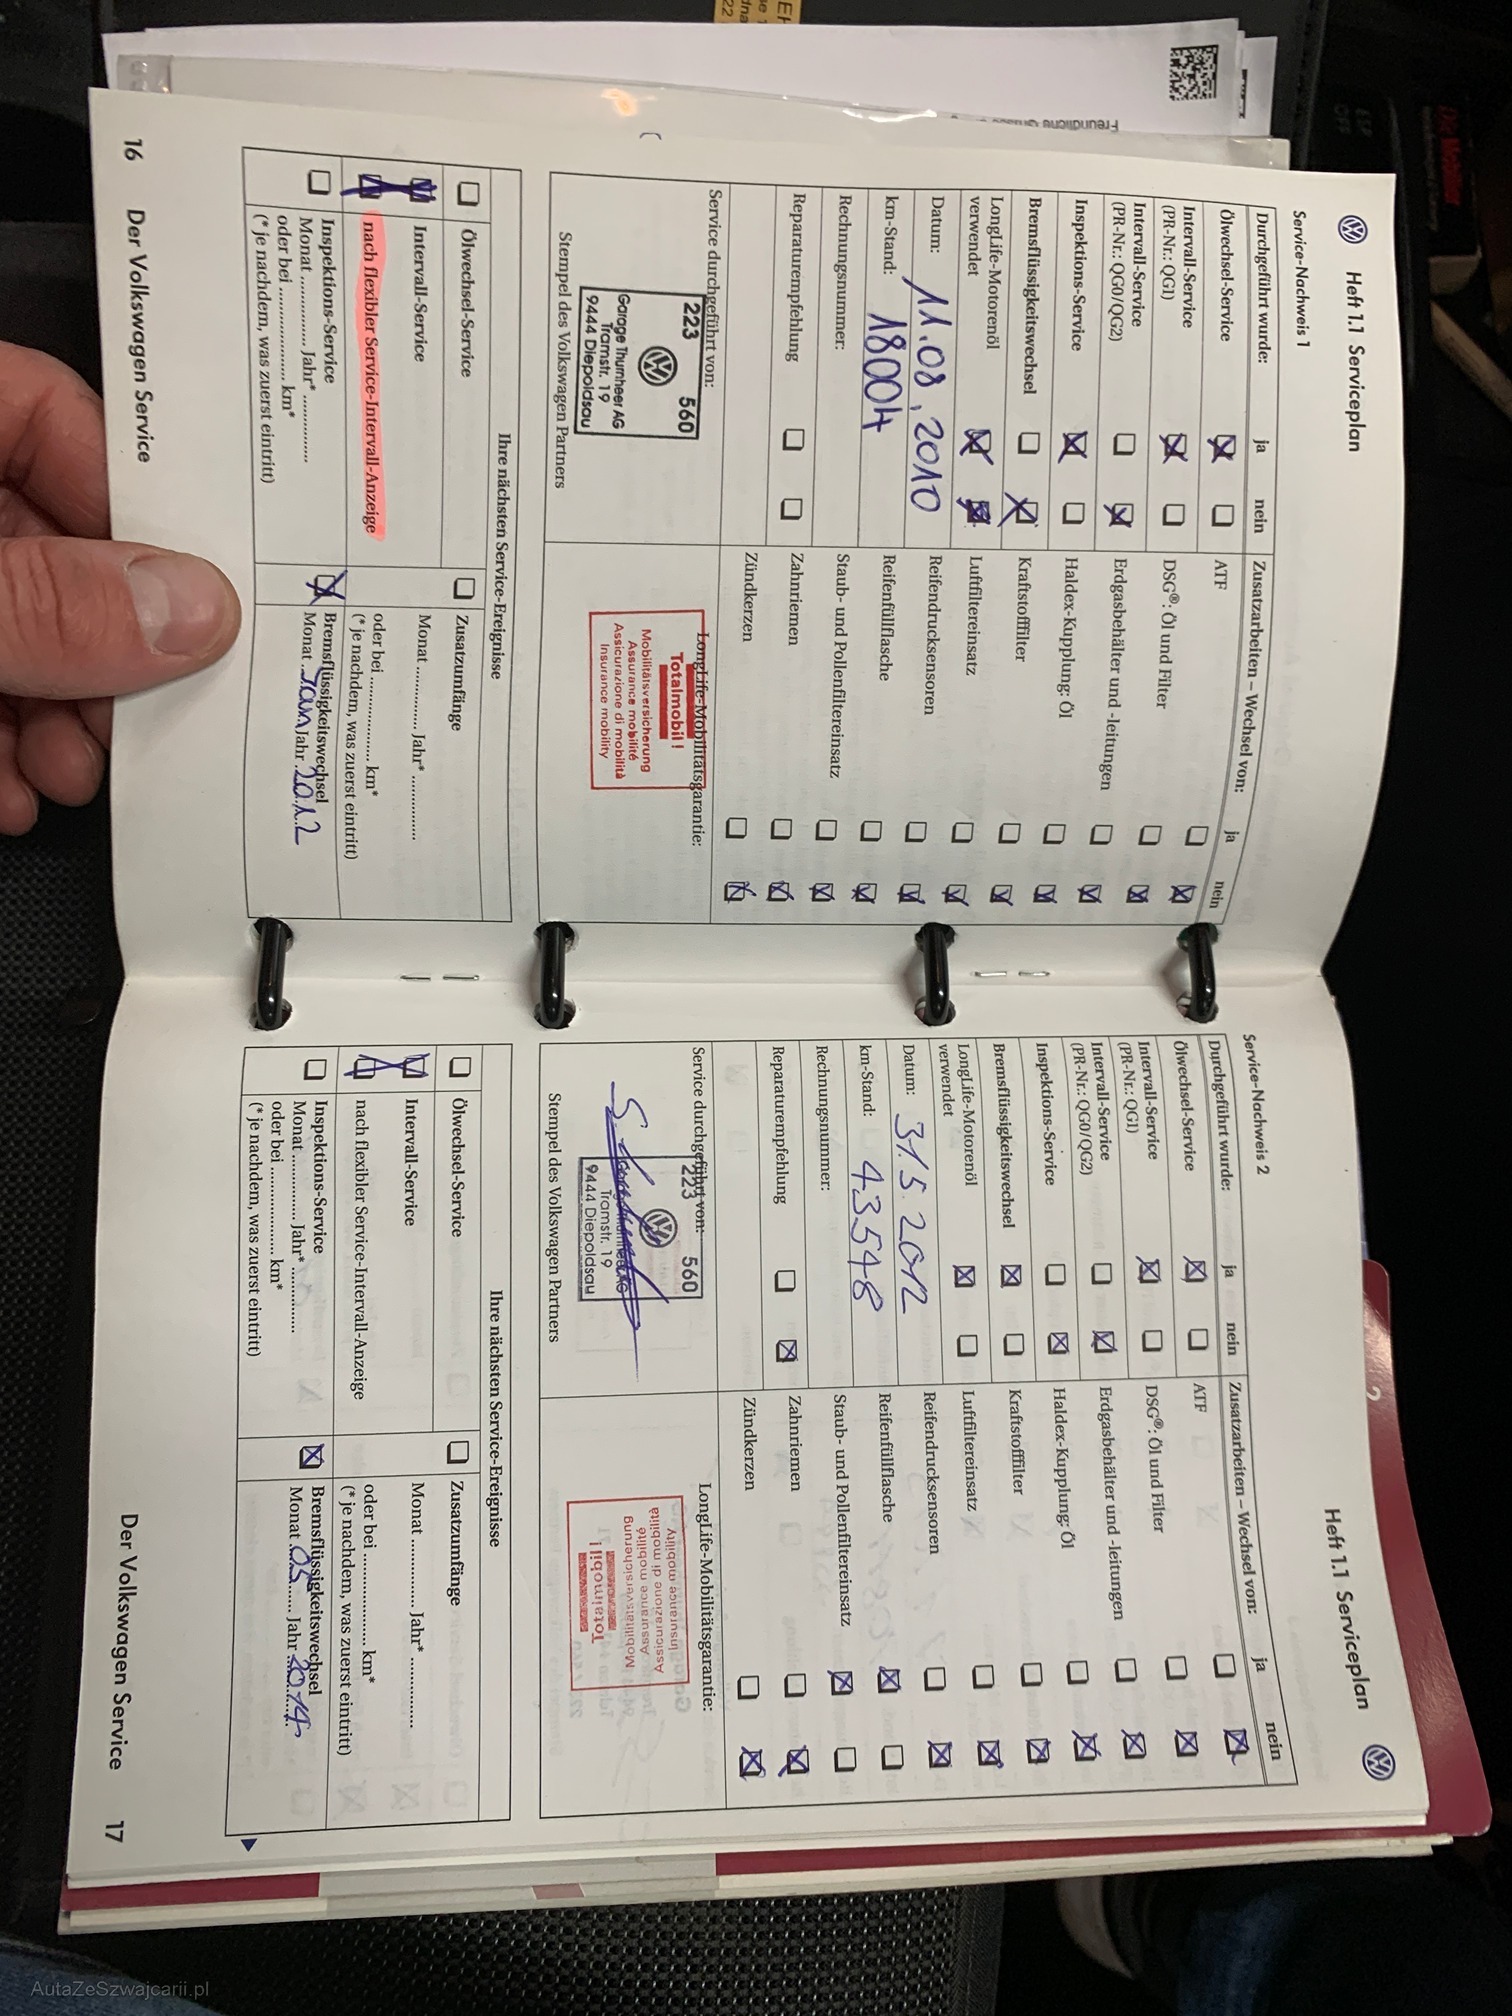 Heft 1.1 Serviceplan
Service-Nachweis 1
Durchgeführt wurde:
ja
nein
Zusatzarbeiten – Wechsel von:
ja
nein
Ölwechsel-Service
ATF
Intervall-Service
(PR-Nr.: QG1)
DSG®: Öl und Filter
Intervall-Service
(PR-Nr.: QG0/QG2)
Erdgasbehälter und -leitungen
Inspektions-Service
Haldex-Kupplung: Öl
Bremsflüssigkeitswechsel
Kraftstofffilter
LongLife-Motorenöl
verwendet
Luftfiltereinsatz
Datum: 11.08.2010
Reifendrucksensoren
km-Stand: 18004
Reifenfüllflasche
Rechnungsnummer:
Staub- und Pollenfiltereinsatz
Reparaturempfehlung
Zahnriemen
Zündkerzen
Service durchgeführt von:
LongLife-Mobilitätsgarantie:
223 560
Garage Thurnheer AG
Tramstr. 19
9444 Diepoldsau
Totalmobil!
Mobilitätsversicherung
Assurance mobilité
Assicurazione di mobilità
Insurance mobility
Stempel des Volkswagen Partners
Ihre nächsten Service-Ereignisse
Ölwechsel-Service
Zusatzumfänge
Intervall-Service
Monat ............. Jahr* .............
nach flexibler Service-Intervall-Anzeige
oder bei .................. km*
(* je nachdem, was zuerst eintritt)
Inspektions-Service
Monat ............. Jahr* .............
oder bei .................. km*
(* je nachdem, was zuerst eintritt)
Bremsflüssigkeitswechsel
Monat Jan Jahr 2012
16 Der Volkswagen Service
Heft 1.1 Serviceplan
Service-Nachweis 2
Durchgeführt wurde:
ja
nein
Zusatzarbeiten – Wechsel von:
ja
nein
Ölwechsel-Service
ATF
Intervall-Service
(PR-Nr.: QG1)
DSG®: Öl und Filter
Intervall-Service
(PR-Nr.: QG0/QG2)
Erdgasbehälter und -leitungen
Inspektions-Service
Haldex-Kupplung: Öl
Bremsflüssigkeitswechsel
Kraftstofffilter
LongLife-Motorenöl
verwendet
Luftfiltereinsatz
Datum: 31.5.2012
Reifendrucksensoren
km-Stand: 43548
Reifenfüllflasche
Rechnungsnummer:
Staub- und Pollenfiltereinsatz
Reparaturempfehlung
Zahnriemen
Zündkerzen
Service durchgeführt von:
LongLife-Mobilitätsgarantie:
223 560
Tramstr. 19
9444 Diepoldsau
Totalmobil!
Mobilitätsversicherung
Assurance mobilité
Assicurazione di mobilità
Insurance mobility
Stempel des Volkswagen Partners
Ihre nächsten Service-Ereignisse
Ölwechsel-Service
Zusatzumfänge
Intervall-Service
Monat ............. Jahr* .............
nach flexibler Service-Intervall-Anzeige
oder bei .................. km*
(* je nachdem, was zuerst eintritt)
Inspektions-Service
Monat ............. Jahr* .............
oder bei .................. km*
(* je nachdem, was zuerst eintritt)
Bremsflüssigkeitswechsel
Monat 05 Jahr 2014
Der Volkswagen Service 17
AutaZeSzwajcarii.pl